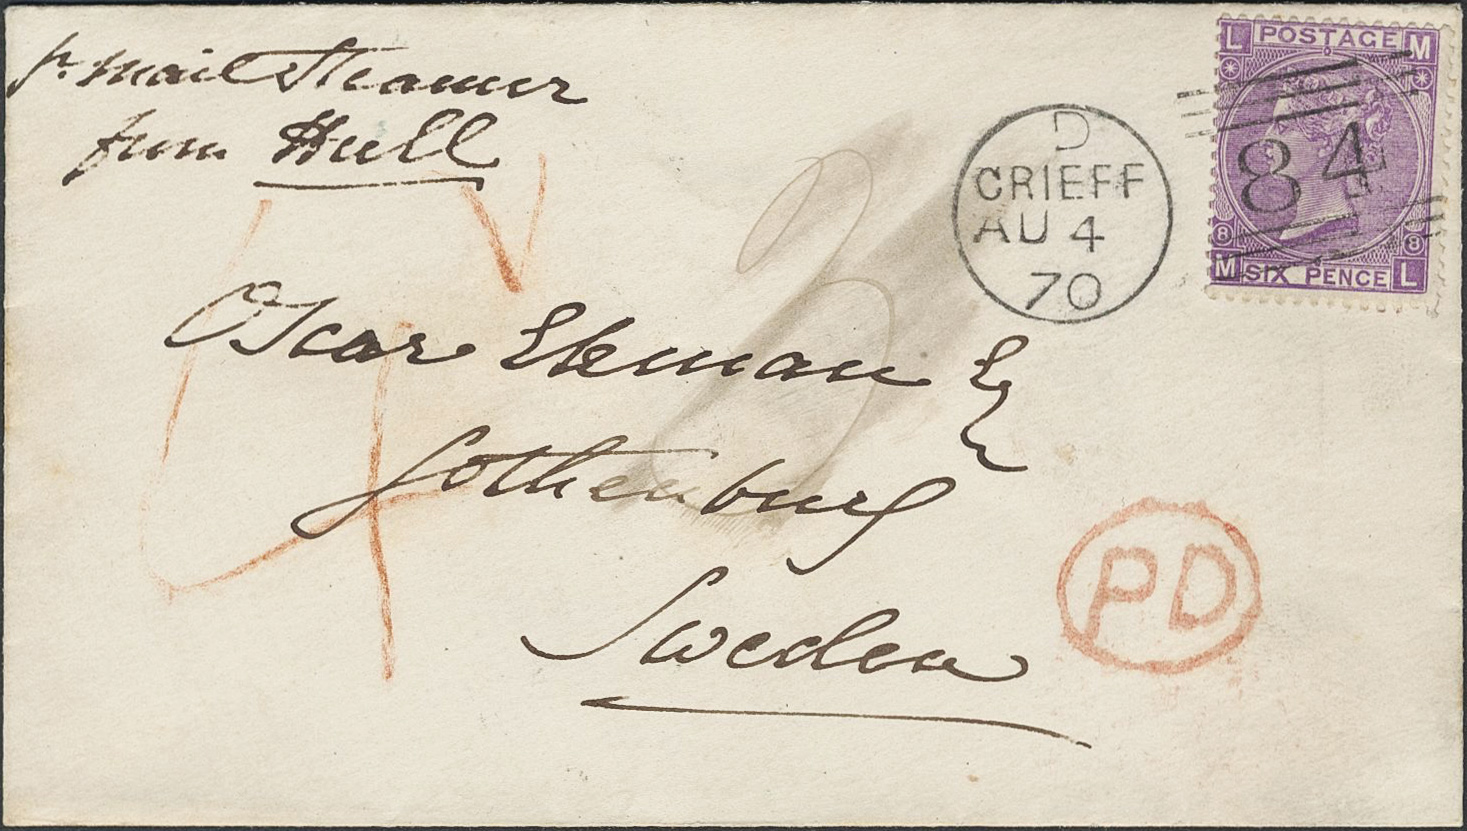 pr. mail steamer
from Hull
L POSTAGE M
84
8 8
M SIX PENCE L
D
CRIEFF
AU 4
70
Oscar Ekman Esq
Gothenburg
Sweden
PD